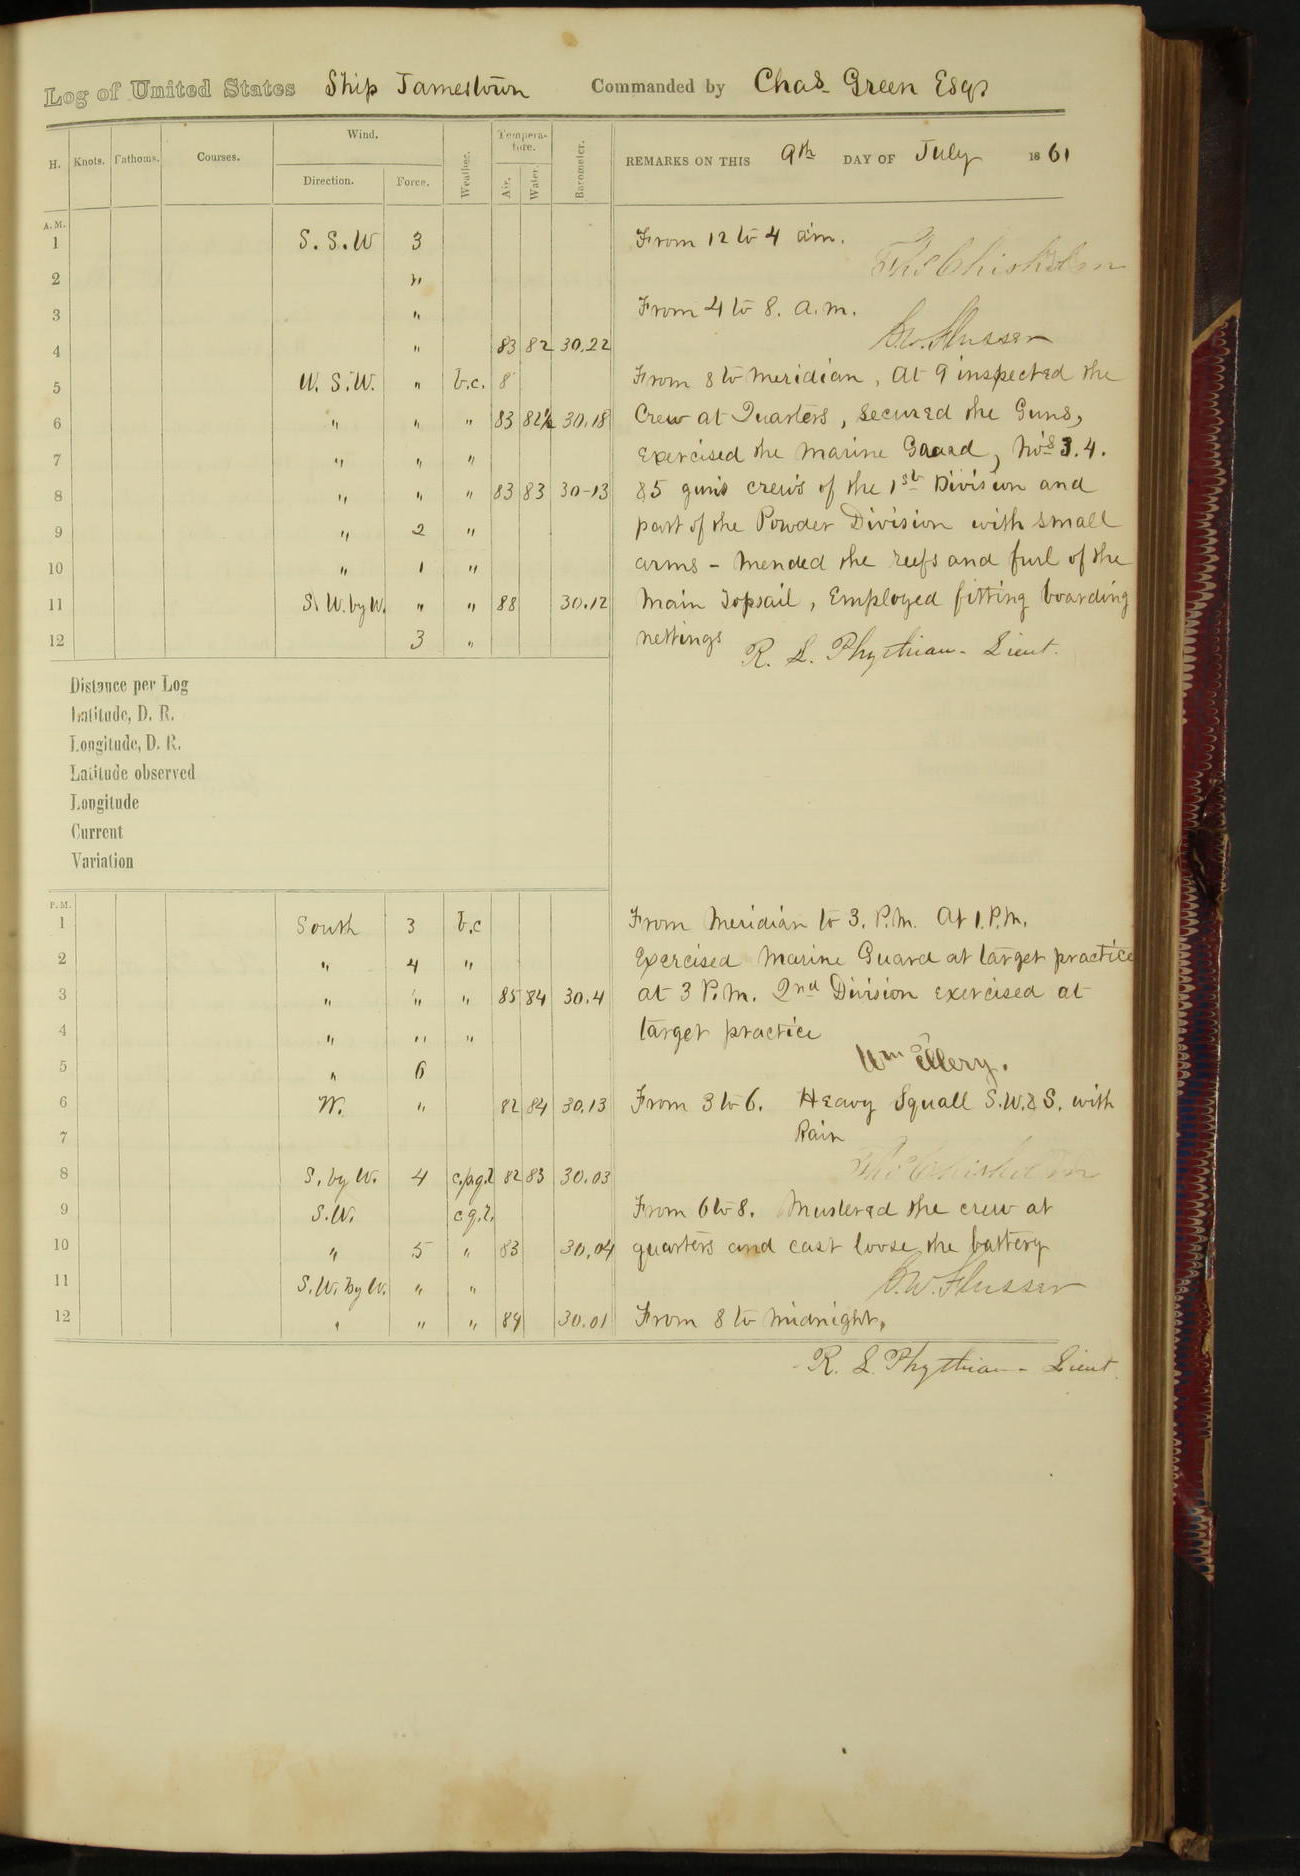 Log of United States Ship Jamestown Commanded by Chas. Green Esqr
H. Knots. Fathoms. Courses. Wind. Direction. Force. Weather. Tempera-ture. Air. Water. Barometer. REMARKS ON THIS 9th DAY OF July 1861
A.M.
1 S.S.W 3 From 12 to 4 a.m.
Thos Chisholm
2 "
3 " From 4 to 8. a.m.
C.W. Flusser
4 " 83 82 30.22
5 W.S.W. " b.c. 8 From 8 to Meridian, At 9 inspected the
6 " " " 83 82½ 30.18 Crew at Quarters, secured the Guns,
7 " " " Exercised the Marine Guard, No's 3.4.
8 " " " 83 83 30-13 &5 guns crews of the 1st Division and
9 " 2 " part of the Powder Division with small
10 " 1 " arms - Mended the reefs and furl of the
11 S.W. by W. " " 88 30.12 Main Topsail, Employed fitting boarding
12 3 " nettings R. L. Phythian - Lieut.
Distance per Log
Latitude, D. R.
Longitude, D. R.
Latitude observed
Longitude
Current
Variation
P.M.
1 South 3 b.c From Meridian to 3. P.M. At 1. P.M.
2 " 4 " Exercised Marine Guard at target practice
3 " " " 85 84 30.4 at 3 P.M. 2nd Division exercised at
4 " " " target practice
Wm Ellery.
5 " 6
6 W. " 82 84 30.13 From 3 to 6. Heavy Squall S.W.& S. with
7 Rain
Thos Chisholm
8 S. by W. 4 82 83 30.03
9 S.W. From 6 to 8. Mustered the crew at
10 " 5 " 83 30.04 quarters and cast loose the battery
C.W. Flusser
11 S.W. by W. " "
12 " " " 84 30.01 From 8 to Midnight.
R. L. Phythian - Lieut.